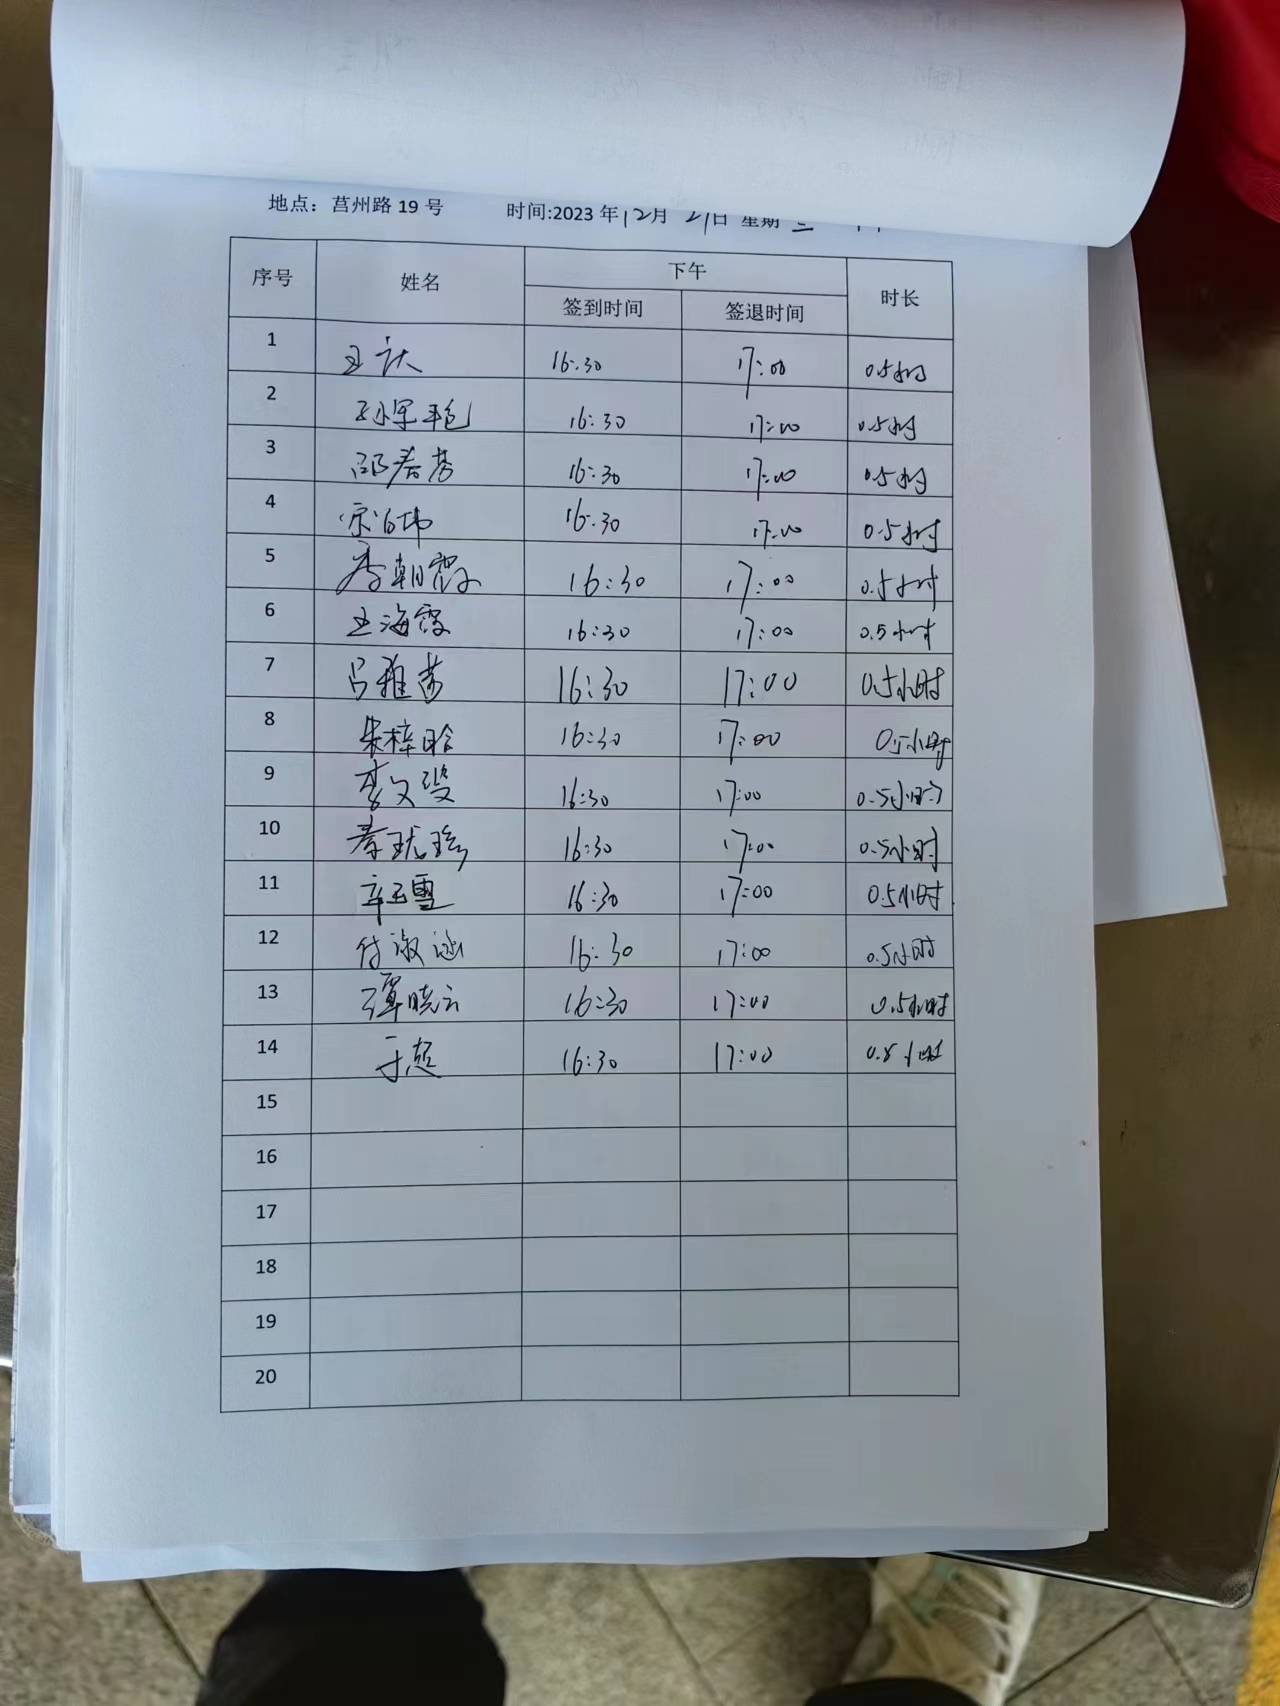 地点：莒州路 19 号 时间:2023 年 12月 21日 星期
序号 姓名 下午 时长
签到时间 签退时间
1 16:30 17:00 0.5小时
2 16:30 17:00 0.5小时
3 邵春芳 16:30 17:00 0.5小时
4 16:30 17:00 0.5小时
5 李朝霞 16:30 17:00 0.5小时
6 王海霞 16:30 17:00 0.5小时
7 吕雅茜 16:30 17:00 0.5小时
8 朱梓晗 16:30 17:00 0.5小时
9 李文雯 16:30 17:00 0.5小时
10 16:30 17:00 0.5小时
11 辛玉雪 16:30 17:00 0.5小时
12 付淑涵 16:30 17:00 0.5小时
13 谭晓云 16:30 17:00 0.5小时
14 于超 16:30 17:00 0.5小时
15
16
17
18
19
20